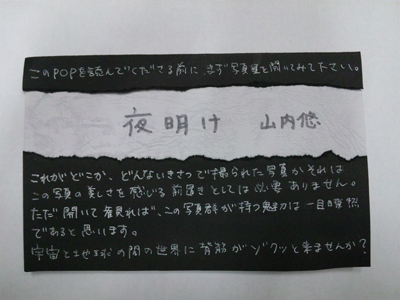 このPOPを読んでくださる前に、まず写真集を開いてみて下さい。
夜明け 山内悠
これがどこか、どんないきさつで撮られた写真かそれは
この写真の美しさを感じる前置きとしては必要ありません。
ただ開いて観れば、この写真群が持つ魅力は一目瞭然
であると思います。
宇宙と地球の間の世界に背筋がゾクッと来ませんか?